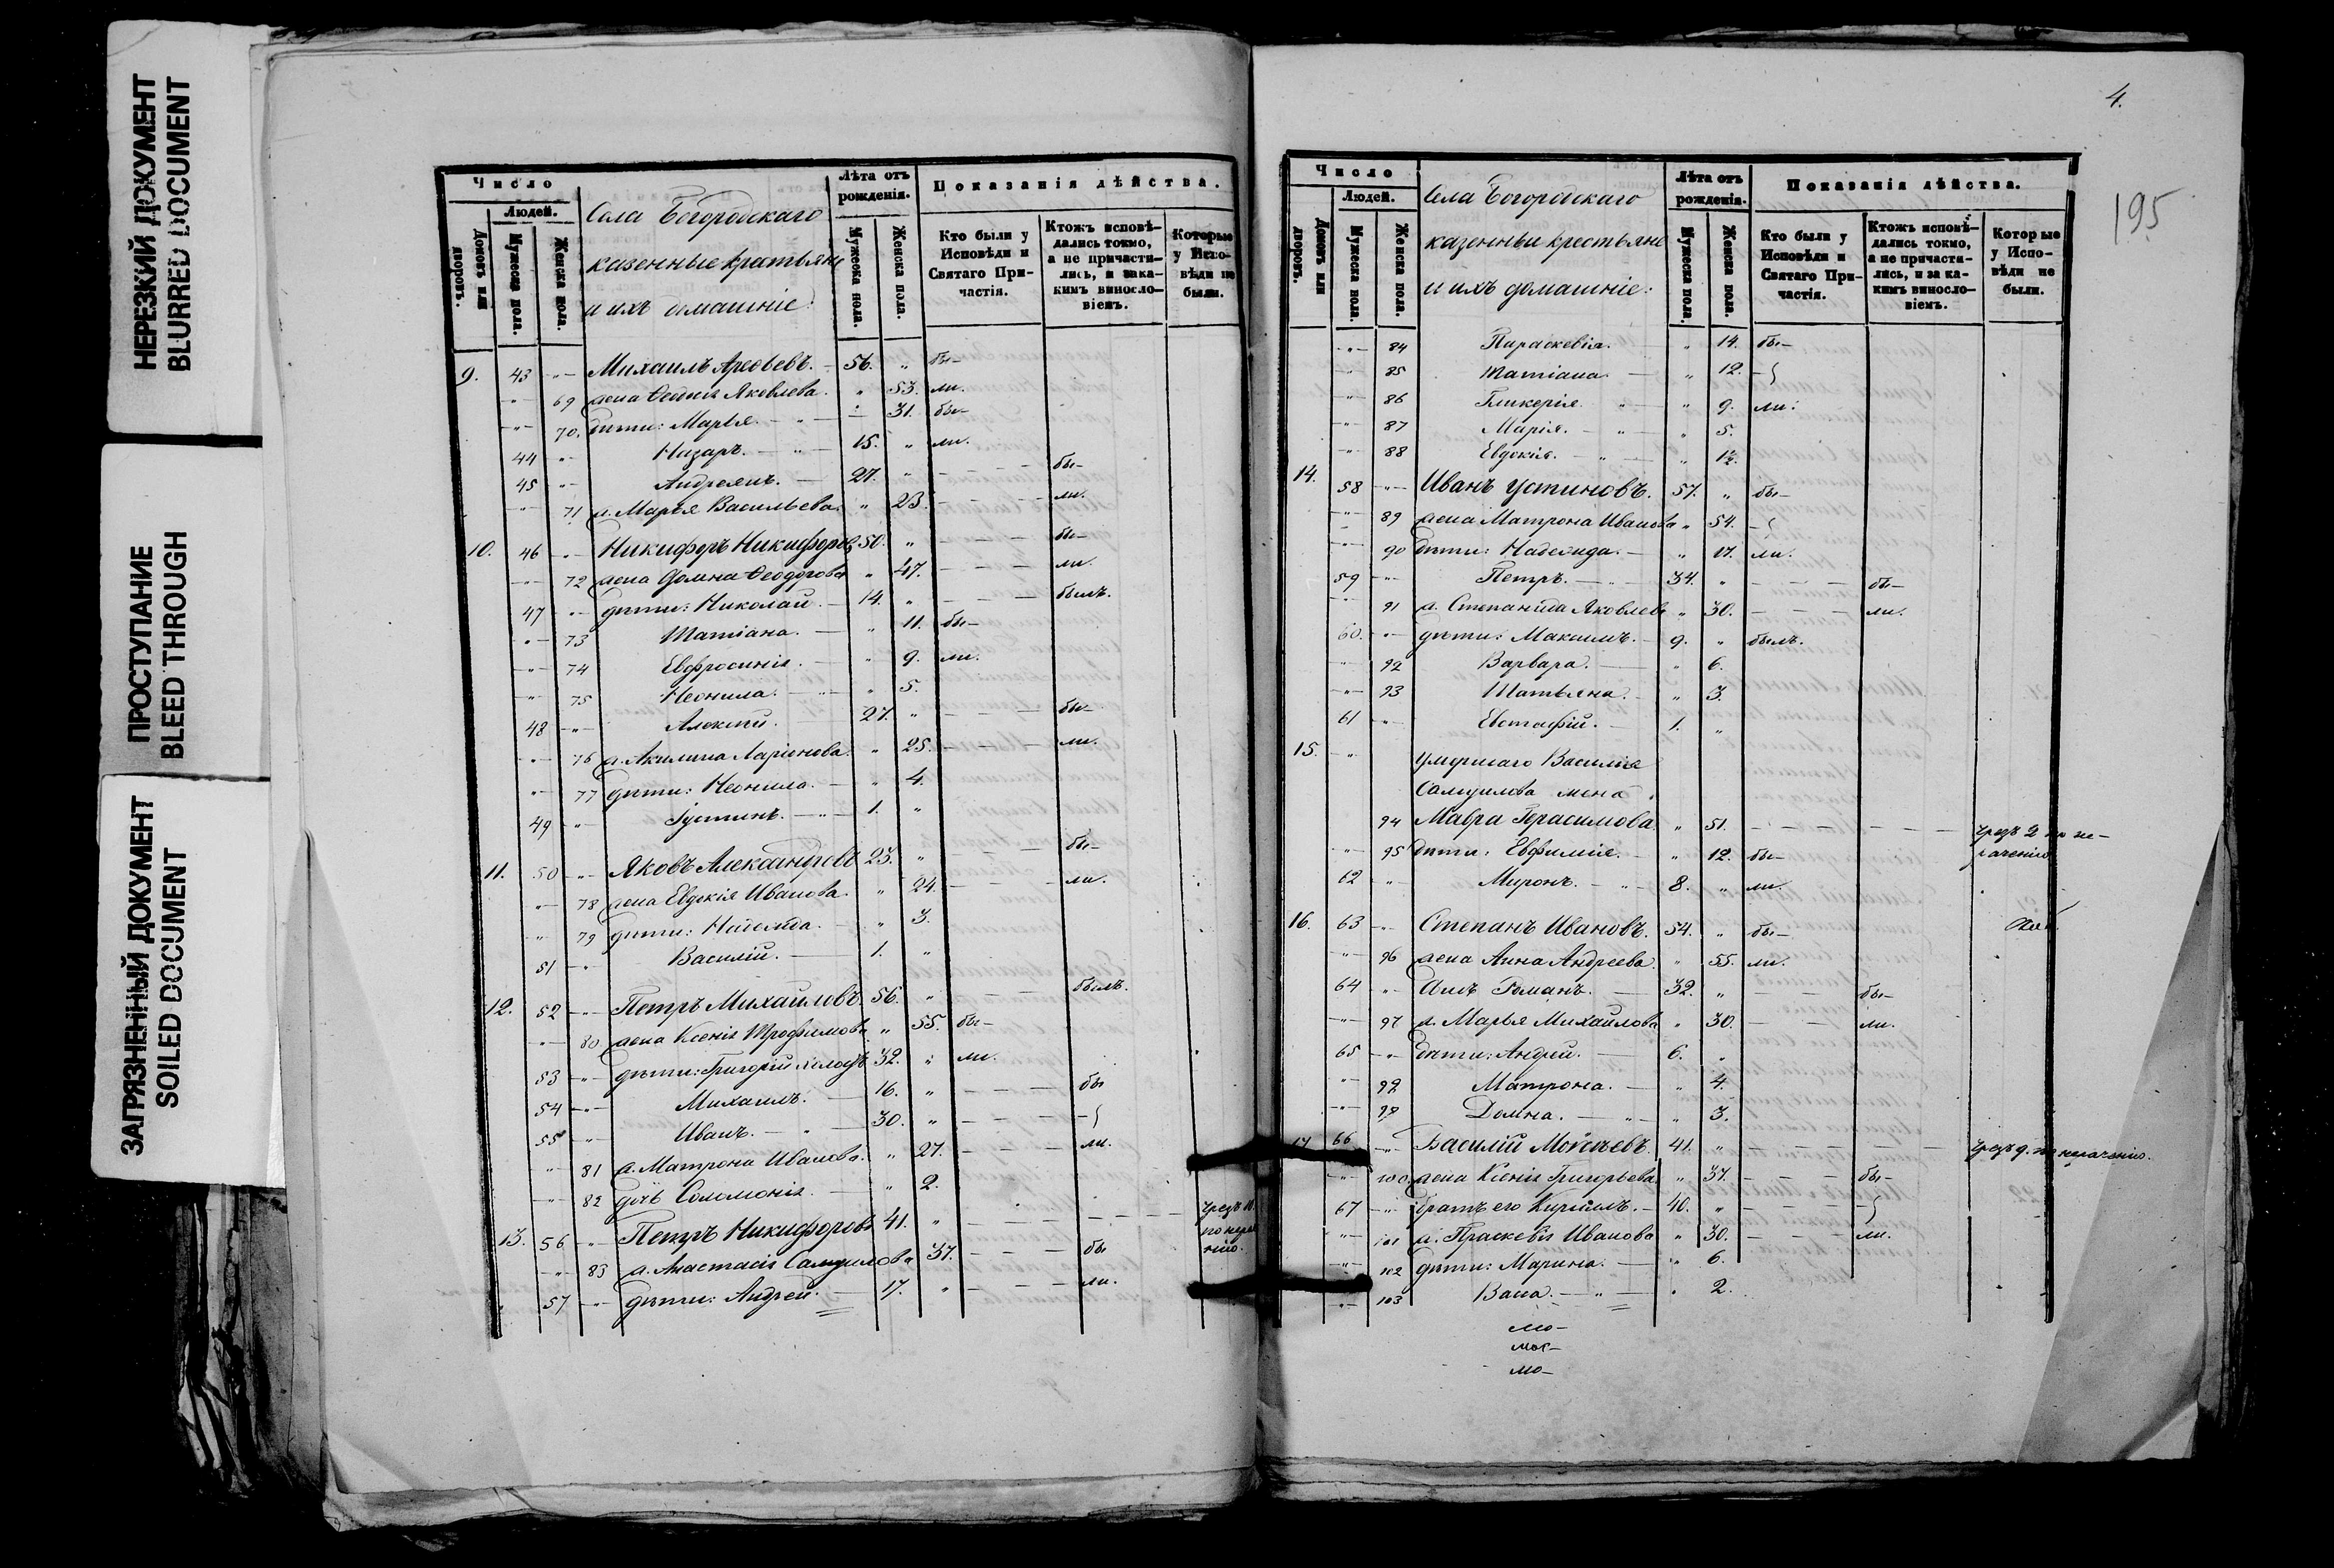 НЕРЕЗКИЙ ДОКУМЕНТ
BLURRED DOCUMENT
ПРОСТУПАНИЕ
BLEED THROUGH
ЗАГРЯЗНЕННЫЙ ДОКУМЕНТ
SOILED DOCUMENT
Число
Людей.
Домовъ или дворовъ.
Мужеска пола.
Женска пола.
Села Богородскаго
казенные крестьяне
и ихъ домашніе:
Лѣта отъ рожденія.
Мужеска пола.
Женска пола.
Показанія дѣйства.
Кто были у Исповѣди и Святаго Причастія.
Ктожъ исповѣдались токмо, а не причастились, и за какимъ винословіемъ.
Которые у Исповѣди не были.
9. 43 -"- Михаилъ 56. " бы-
-"- 69 жена Яковлева. " 53. ли.
-"- 70. дѣти: Марья. - " - 31. бы-
44 -"- Назаръ. - " - 15. " ли.
45 -"- Андреянъ. - 27. " - - - бы-
-"- 71 ж. Марья Васильева. " 23. - - - ли.
10. 46 -"- Никифоръ Никифоровъ 50. " - - - бы-
-"- 72 жена Домна Ѳеодорова " 47. - - - ли.
47 -"- дѣти: Николай. - 14. " - - - былъ.
-"- 73 Татіана. - " 11. бы-
-"- 74 Евфросинія. - " 9. ли.
-"- 75 Неонила. - " 5.
48 -"- Алексѣй. 27. " - - - бы-
-"- 76 ж. Акилина Ларіонова. " 25. - - - ли.
-"- 77 дѣти: Неонила. - " 4.
49 -"- Іустинъ. - " - 1. "
11. 50 -"- Яковъ Александровъ 23. " - - - бы-
-"- 78 жена Евдокія Иванова. " 24. - - - ли.
-"- 79 дѣти: Надежда. - " 3.
51 -"- Василій. - 1. "
12. 52 -"- Петръ Михайловъ. 56. " - - - былъ.
-"- 80 жена Ксенія Трофимова. " 55. бы-
53 -"- дѣти: Григорій 32. " ли.
54 -"- Михаилъ. - 16. " - - - бы
55 -"- Иванъ. - " - 30. " - - - -
-"- 81 ж. Матрона Иванова. " 27. - - - ли.
-"- 82 дочь Соломонія. - " 2.
13. 56 -"- Петръ Никифоровъ 41. " - - - - -
-"- 83 ж. Анастасія Самуилова 37. - - - бы
57 -"- дѣти: Андрей. - 17. " - - - ли.
4.
195
Число
Людей.
Домовъ или дворовъ.
Мужеска пола.
Женска пола.
Села Богородскаго
казенные крестьяне
и ихъ домашніе:
Лѣта отъ рожденія.
Мужеска пола.
Женска пола.
Показанія дѣйства.
Кто были у Исповѣди и Святаго Причастія.
Ктожъ исповѣдались токмо, а не причастились, и за какимъ винословіемъ.
Которые у Исповѣди не были.
-"- 84 Параскевія. " 14. бы-
-"- 85 Татіана - " 12. -
-"- 86 Гликерія. " - " 9. ли.
-"- 87 Марія. - " - " 5.
-"- 88 Евдокія. - " - "
14. 58 -"- Иванъ Устиновъ. 57. " бы-
-"- 89 жена Матрона Иванова " 54. -
-"- 90 дѣти: Надежда. - " 17. ли.
59 -"- Петръ. - " - 34. " - - - бы-
-"- 91 ж. Степанида Яковлева " 30. - - - ли.
60. -"- дѣти: Максимъ. - 9. " былъ.
-"- 92 Варвара. - " 6.
-"- 93 Татьяна. - " 3.
61 -"- Евстафій. - 1. "
15. -"- умершаго Василія
Самуилова жена
94 Мавра Герасимова. " 51. - - - - - - чрезъ 2 по не-
-"- 95 дѣти: Евфимія. - " 12. бы- раченію
62 -"- Миронъ. - " - 8. " ли.
16. 63 -"- Степанъ Ивановъ. 54. " бы-
-"- 96 жена Анна Андреева. " 55. ли.
64 -"- Романъ. - 32. " - - бы-
-"- 97 ж. Марья Михайлова " 30. - - ли.
65 -"- дѣти: Андрей. - 6. "
-"- Матрона. - " 4.
-"- Домна. - " - " 3.
17. 66 -"- Василій Моисѣевъ. 41. " - - - - - -
-"- 100 жена Ксенія Григорьева. " 37. - - - бы-
67 -"- братъ его Кирилъ. - 40. " - - - -
-"- 101 ж. Праскевія Иванова " 30. - - - ли.
-"- 102 дѣти: Марина. - " 6.
-"- 103 Васа. - " - " 2.